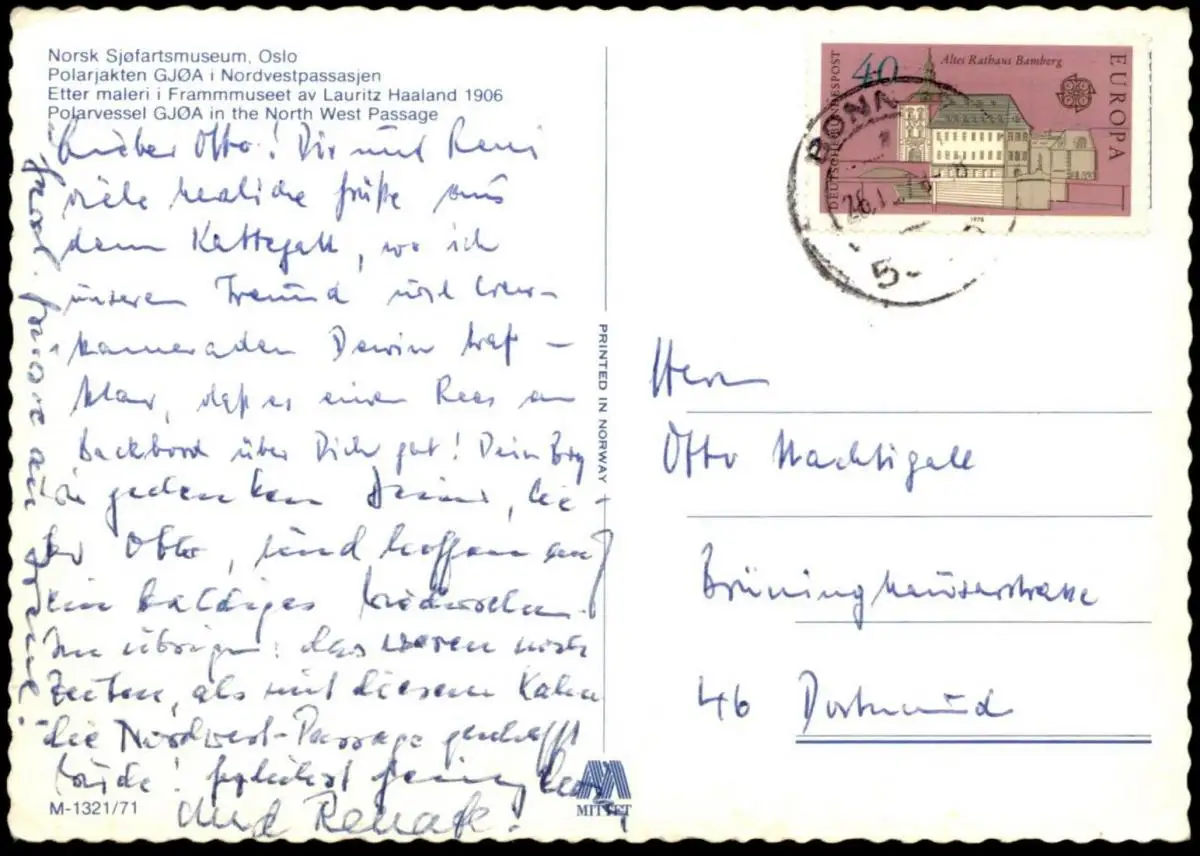 Norsk Sjøfartsmuseum, Oslo
Polarjakten GJØA i Nordvestpassasjen
Etter maleri i Frammmuseet av Lauritz Haaland 1906
Polarvessel GJØA in the North West Passage
Lieber Otto! Dir und
viele herzliche Grüße aus
dem Kattegatt, wo ich
unseren Freund und Crew-
kameraden traf –
klar, daß es einen Rees an
Backbord über Dich gab! Dein
gedenken Deiner, lie-
ber Otto, und hoffen auf
ein baldiges Wiedersehen.
Im übrigen: das waren noch
Zeiten, als mit diesem Kahn
die Nordwest-Passage geschafft
wurde!
und Renate.
M-1321/71
MITTET
PRINTED IN NORWAY
40
Altes Rathaus Bamberg
EUROPA
DEUTSCHE BUNDESPOST
1978
BONN
5
Herrn
Otto Nachtigall
Brüninghauserstrasse
46 Dortmund